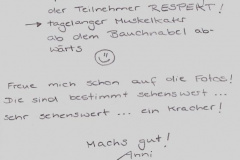 der Teilnehmer RESPEKT!
→ tagelanger Muskelkater
ab dem Bauchnabel ab-
wärts
Freue mich schon auf die Fotos!
Die sind bestimmt sehenswert ...
sehr sehenswert ... ein Kracher!
Machs gut!
Anni